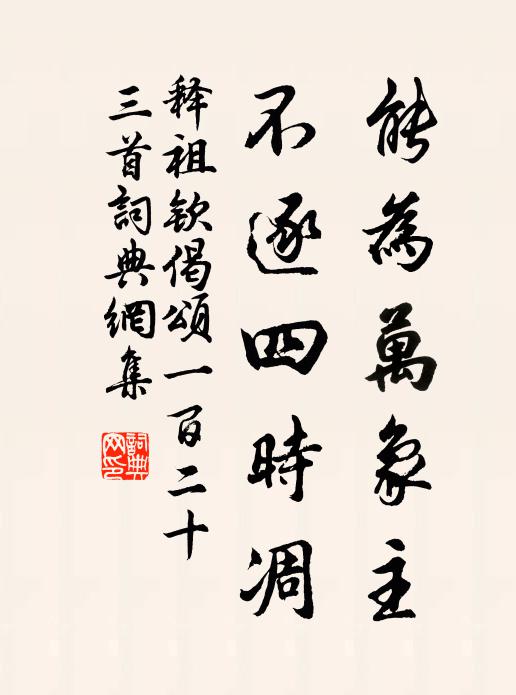 能為萬象主
不逐四時凋
释祖欽偈頌一百二十
三首詞典網集
詞典網印